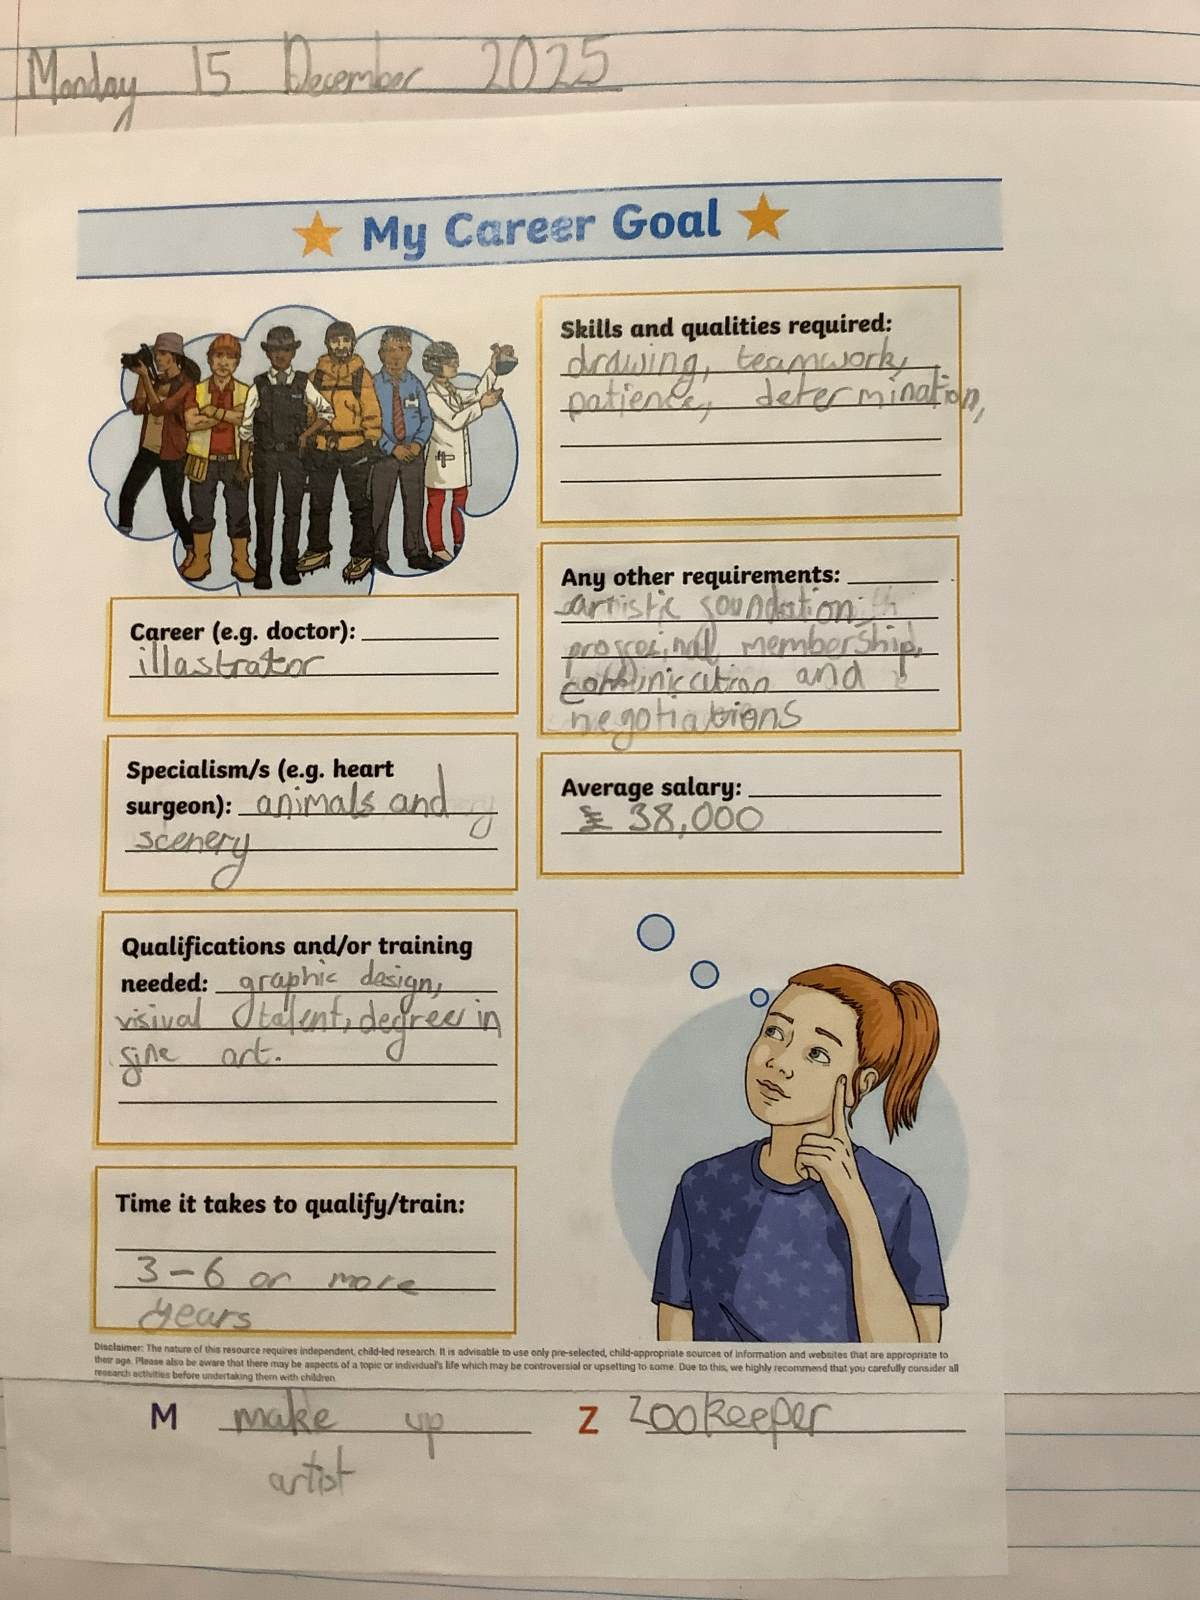 Monday 15 December 2025
My Career Goal
Career (e.g. doctor):
illastrator
Specialism/s (e.g. heart
surgeon): animals and
scenery
Qualifications and/or training
needed: graphic design,
visival talent, degree in
fine art.
Time it takes to qualify/train:
3-6 or more
years
Skills and qualities required:
drawing, teamwork,
patience, determination,
Any other requirements:
artistic foundation
membership,
communication and
negotiations
Average salary:
£ 38,000
Disclaimer: The nature of this resource requires independent, child-led research. It is advisable to use only pre-selected, child-appropriate sources of information and websites that are appropriate to
their age. Please also be aware that there may be aspects of a topic or individual's life which may be controversial or upsetting to some. Due to this, we highly recommend that you carefully consider all
research activities before undertaking them with children
M make up
artist
Z zookeeper